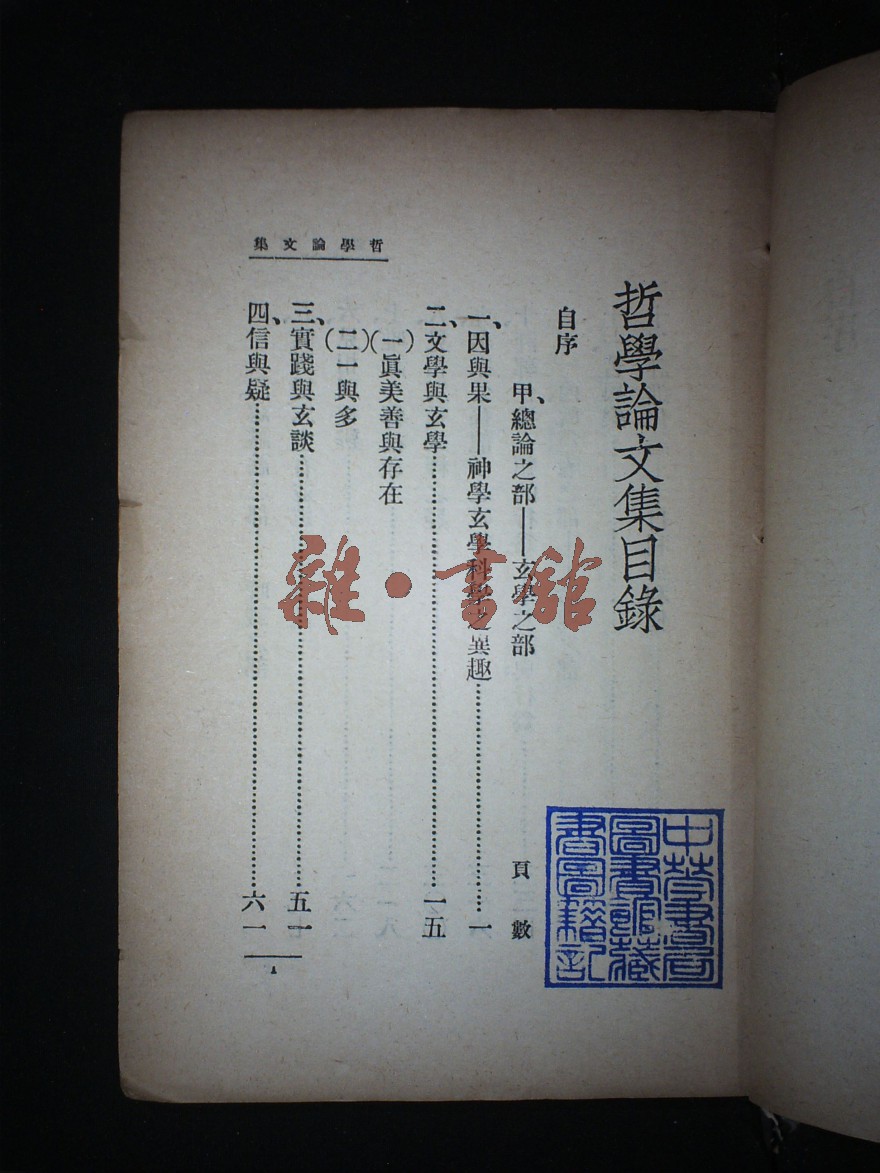 哲學論文集目錄
自序
甲、總論之部——玄學之部 頁數
一、因與果——神學玄學科學之異趣……一
二、文學與玄學……一五
(一)眞美善與存在
(二)一與多
三、實踐與玄談……五一
四、信與疑……六一
哲學論文集
一
雜·書館
中華書局
圖書館藏
書圖籍記